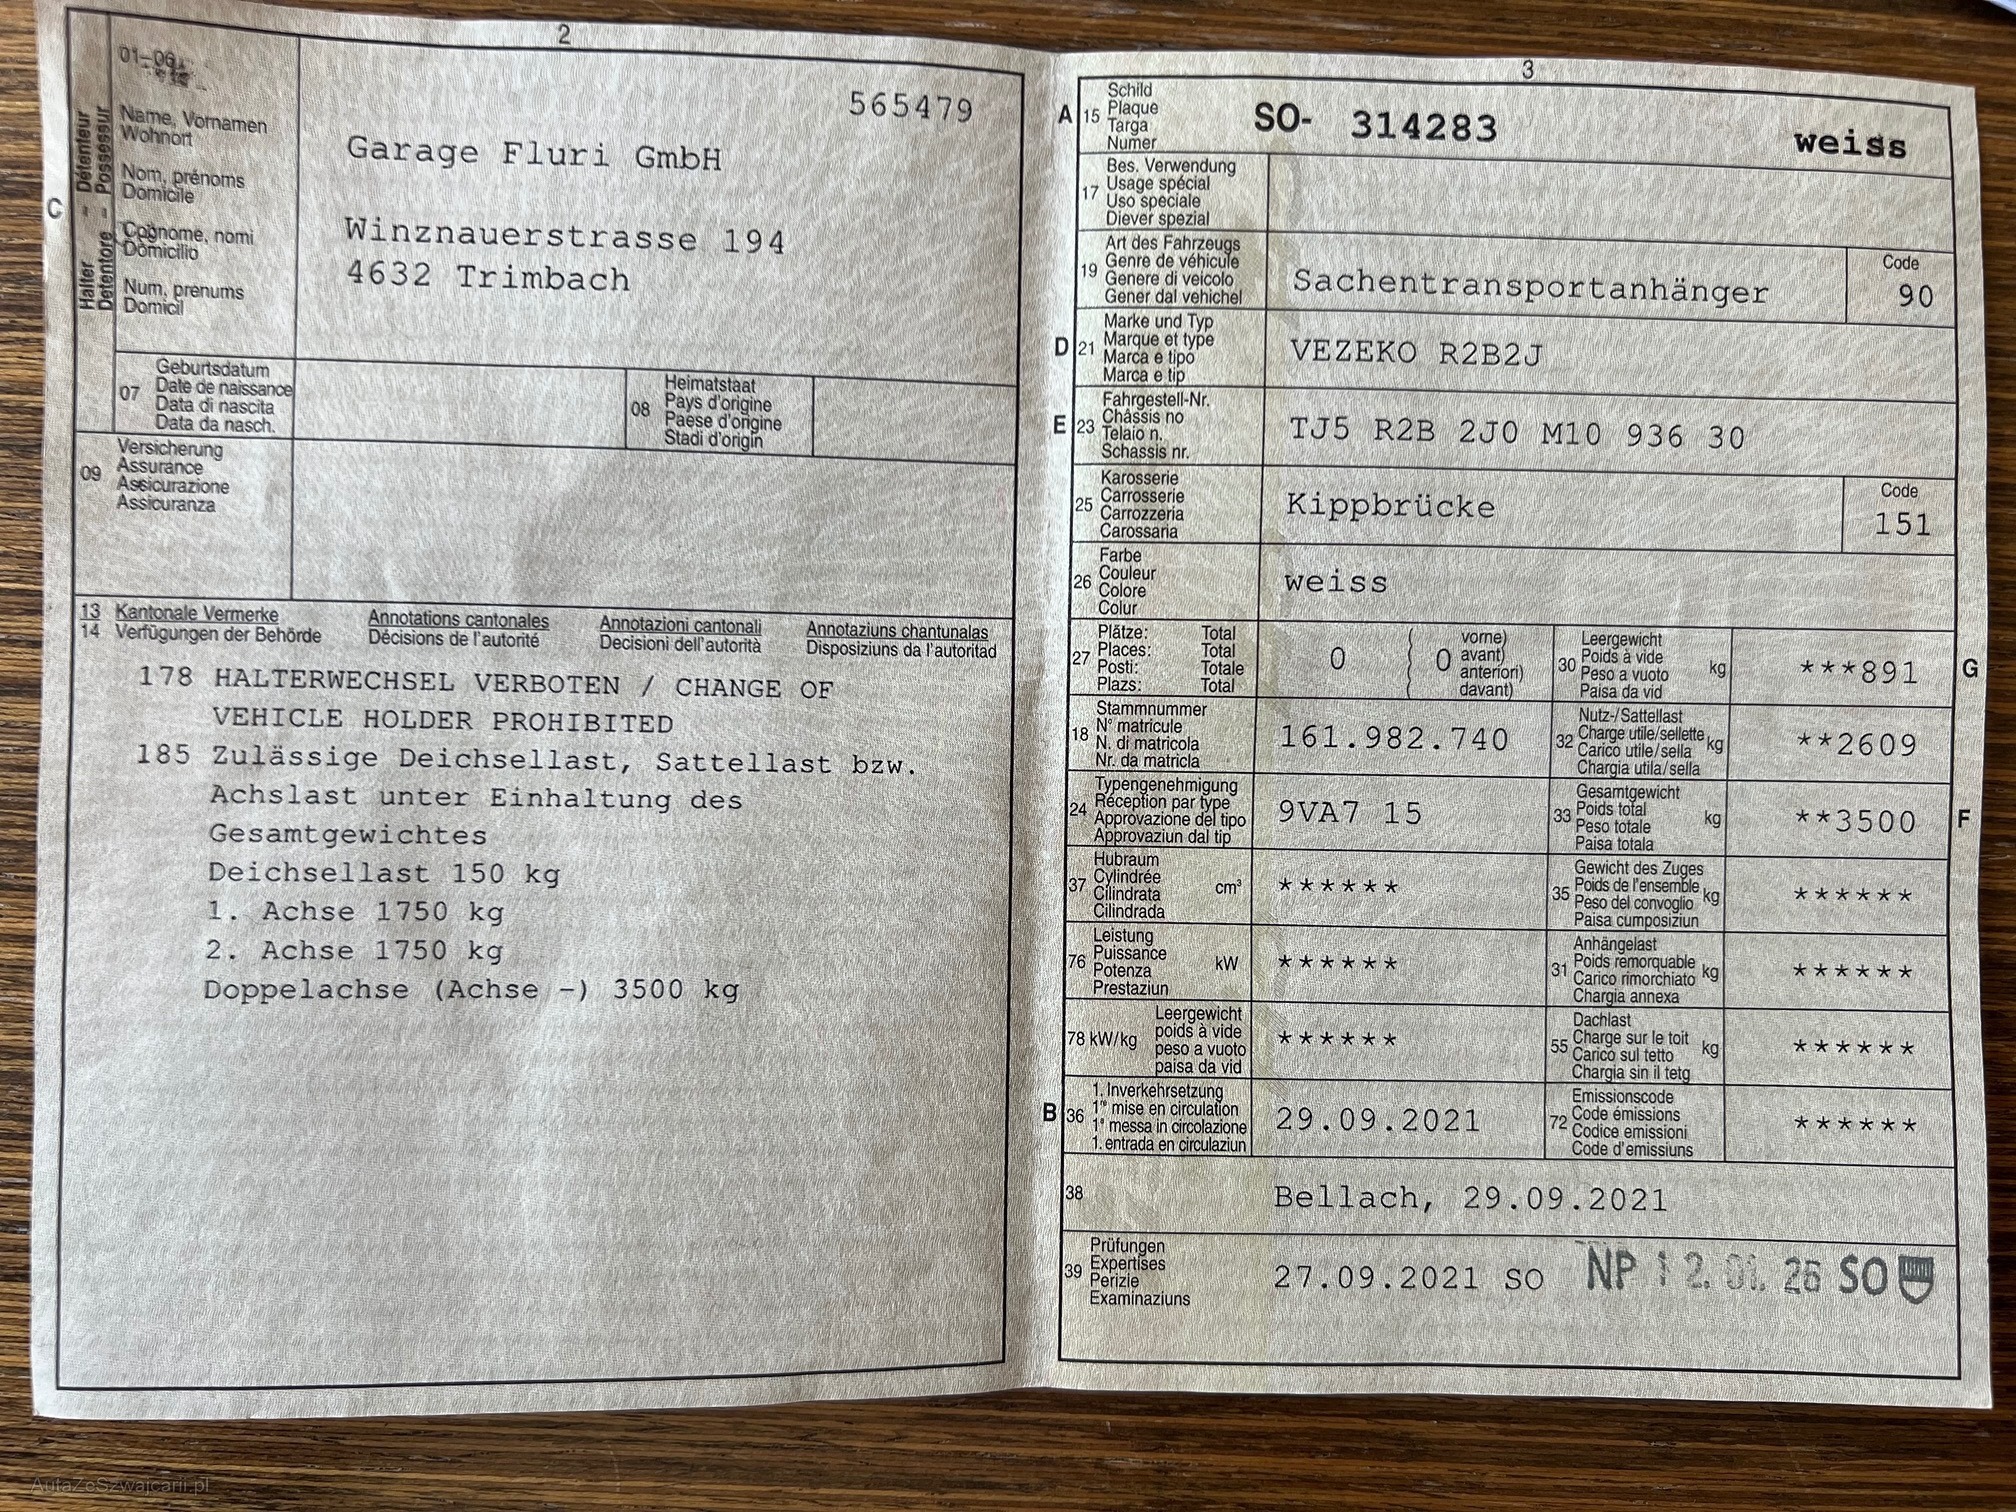 2
01-06
565479
C
Halter - Détenteur
Detentore - Possessur
Name, Vornamen
Wohnort
Nom, prénoms
Domicile
Cognome, nomi
Domicilio
Num, prenums
Domicil
Garage Fluri GmbH
Winznauerstrasse 194
4632 Trimbach
07
Geburtsdatum
Date de naissance
Data di nascita
Data da nasch.
08
Heimatstaat
Pays d'origine
Paese d'origine
Stadi d'origin
09
Versicherung
Assurance
Assicurazione
Assicuranza
13 Kantonale Vermerke Annotations cantonales Annotazioni cantonali Annotaziuns chantunalas
14 Verfügungen der Behörde Décisions de l'autorité Decisioni dell'autorità Disposiziuns da l'autoritad
178 HALTERWECHSEL VERBOTEN / CHANGE OF
VEHICLE HOLDER PROHIBITED
185 Zulässige Deichsellast, Sattellast bzw.
Achslast unter Einhaltung des
Gesamtgewichtes
Deichsellast 150 kg
1. Achse 1750 kg
2. Achse 1750 kg
Doppelachse (Achse -) 3500 kg
3
A 15
Schild
Plaque
Targa
Numer
SO- 314283 weiss
17
Bes. Verwendung
Usage spécial
Uso speciale
Diever spezial
19
Art des Fahrzeugs
Genre de véhicule
Genere di veicolo
Gener dal vehichel
Sachentransportanhänger
Code
90
D 21
Marke und Typ
Marque et type
Marca e tipo
Marca e tip
VEZEKO R2B2J
E 23
Fahrgestell-Nr.
Châssis no
Telaio n.
Schassis nr.
TJ5 R2B 2J0 M10 936 30
25
Karosserie
Carrosserie
Carrozzeria
Carossaria
Kippbrücke
Code
151
26
Farbe
Couleur
Colore
Colur
weiss
27
Plätze: Total
Places: Total
Posti: Totale
Plazs: Total
0 ( 0
vorne)
avant)
anteriori)
davant)
30
Leergewicht
Poids à vide
Peso a vuoto
Paisa da vid
kg
***891
G
18
Stammnummer
N° matricule
N. di matricola
Nr. da matricla
161.982.740
32
Nutz-/Sattellast
Charge utile/sellette
Carico utile/sella
Chargia utila/sella
kg
**2609
24
Typengenehmigung
Réception par type
Approvazione del tipo
Approvaziun dal tip
9VA7 15
33
Gesamtgewicht
Poids total
Peso totale
Paisa totala
kg
**3500
F
37
Hubraum
Cylindrée
Cilindrata
Cilindrada
cm³
******
35
Gewicht des Zuges
Poids de l'ensemble
Peso del convoglio
Paisa cumposiziun
kg
******
76
Leistung
Puissance
Potenza
Prestaziun
kW
******
31
Anhängelast
Poids remorquable
Carico rimorchiato
Chargia annexa
kg
******
78 kW/kg
Leergewicht
poids à vide
peso a vuoto
paisa da vid
******
55
Dachlast
Charge sur le toit
Carico sul tetto
Chargia sin il tetg
kg
******
B 36
1. Inverkehrsetzung
1re mise en circulation
1a messa in circolazione
1. entrada en circulaziun
29.09.2021
72
Emissionscode
Code émissions
Codice emissioni
Code d'emissiuns
******
38
Bellach, 29.09.2021
39
Prüfungen
Expertises
Perizie
Examinaziuns
27.09.2021 SO NP 12.01.26 SO
AutazeSzwajcarii.pl